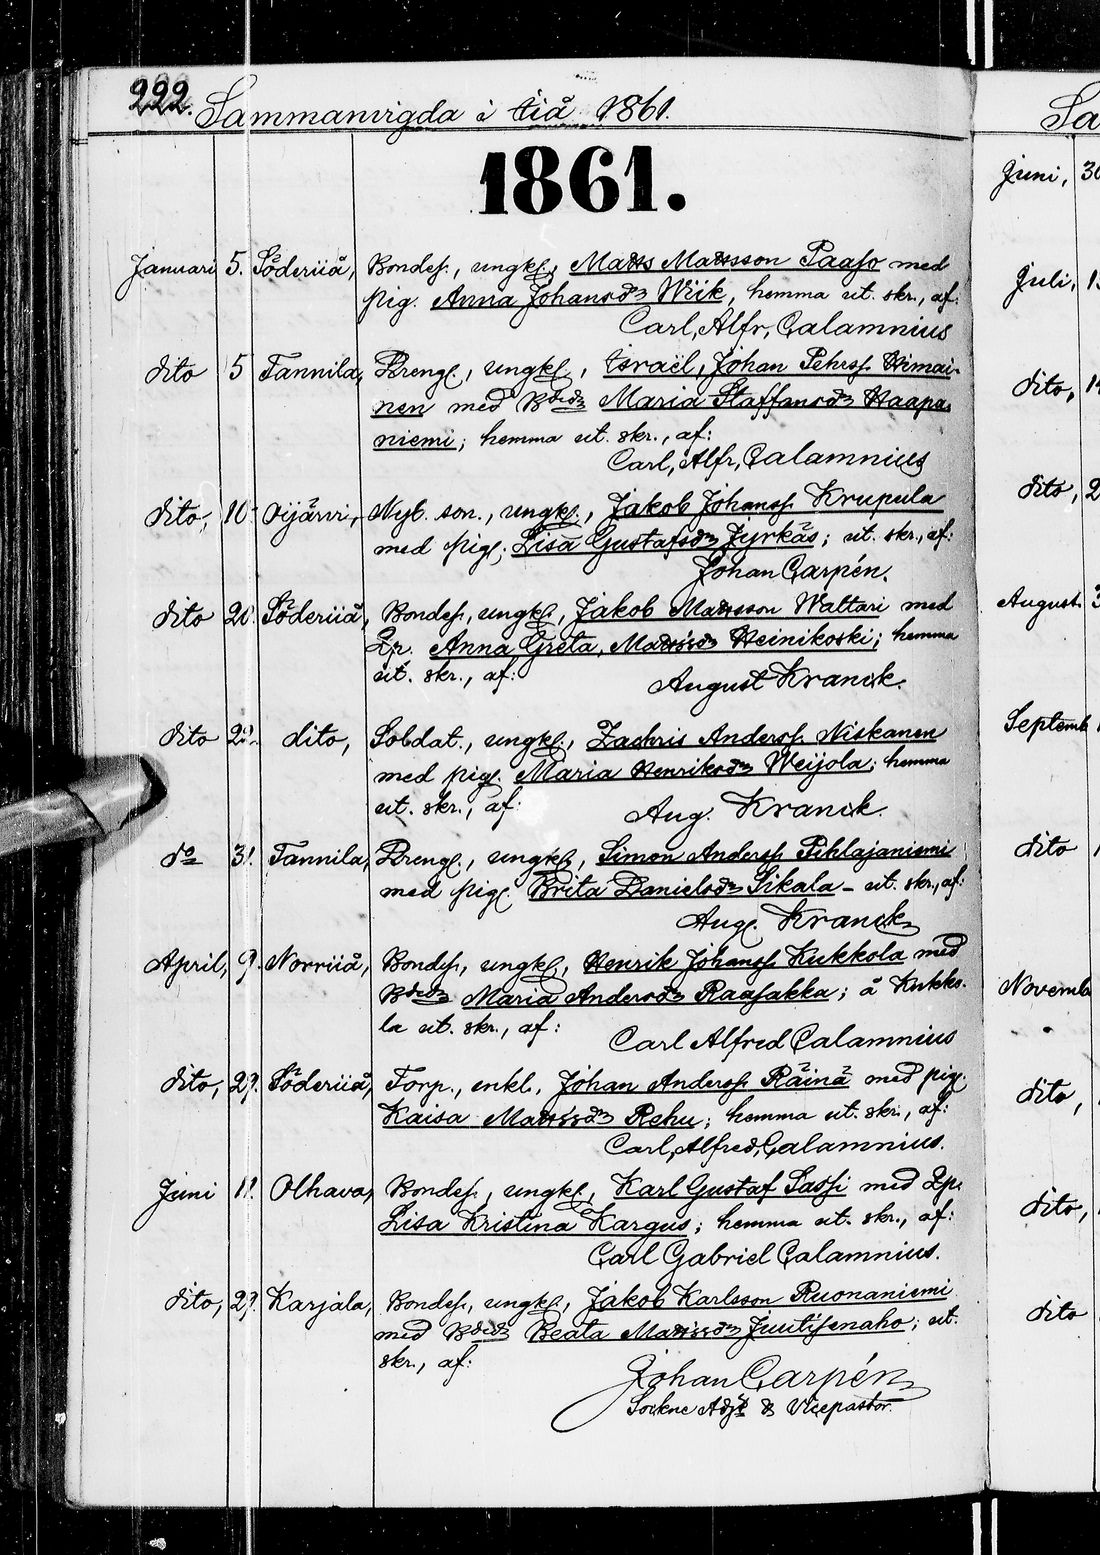 222. Sammanvigda i Iiå 1861.
1861.
Januari 5. Söderiiå, Bondes., ungkl., Matts Mattsson Paaso med
pig. Anna Johansdr Wiik, hemma ut. skr., af:
Carl, Alfr, Calamnius
dito 5 Tannila, Dreng., ungkl., Israël, Johan Pehrss. Himai-
nen med Bdedr Maria Staffansdr Haapa-
niemi; hemma ut. skr., af:
Carl, Alfr, Calamnius
dito, 10. Oijärvi, Nyb. son., ungkl., Jakob Johanss. Krupula
med pig. Lisa Gustafsdr Jyrkäs; ut. skr., af:
Johan Carpén.
dito 20. Söderiiå, Bondes., ungkl., Jakob Mattsson Wattari med
Lp. Anna, Greta, Mattsdr Heinikoski; hemma
ut. skr., af:
August Kranck.
dito 22. dito, Soldat., ungkl., Zachris Anderss. Niskanen
med pig. Maria Henriksdr Weijola; hemma
ut. skr., af:
Aug. Kranck.
do 31. Tannila, Dreng., ungkl., Simon Anderss. Pihlajaniemi
med pig. Brita Danielsdr Sikala - ut. skr., af:
Aug. Kranck
April, 9. Norriiå, Bondes., ungkl., Henrik Johanss. Kukkola med
Bdedr Maria Andersdr Raasakka; å Kukko-
la ut. skr., af:
Carl Alfred Calamnius
dito, 29. Söderiiå, Torp., enkl., Johan Anderss. Räinä med pig.
Kaisa Mattsdr Rehu; hemma ut. skr., af:
Carl, Alfred, Calamnius.
Juni 11. Olhava, Bondes., ungkl., Karl Gustaf Sassi med Lp.
Lisa Kristina Kargus; hemma ut. skr., af:
Carl Gabriel Calamnius.
dito, 29. Karjala, Bondes., ungkl., Jakob Karlsson Ruonaniemi
med Bdedr Beata Mattsdr Juutisenaho; ut.
skr., af:
Johan Carpén
Sockne Adjt & Vicepastor.
Sa
Juni, 30
Juli, 1
dito, 14
dito, 2
August. 3
Septemb
dito
Novemb
dito,
dito,
dito